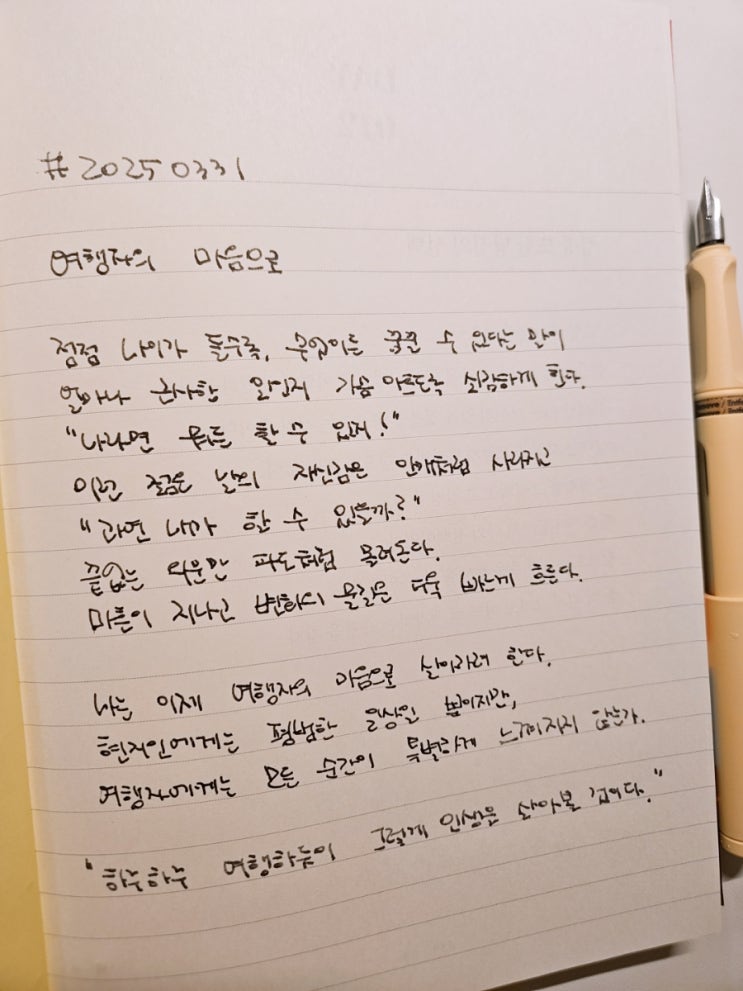 #20250331
여행자의 마음으로
점점 나이가 들수록, 움직이를 꿈꿀 수 있다는 말이
얼마나 근사한 일인지 가슴 아프도록 실감하게 한다.
"나라면 뭐든 할 수 있지!"
이런 젊은 날의 자신감은 안개처럼 사라지고
"과연 내가 할 수 있을까?"
끝없는 의문만 파도처럼 몰려든다.
마흔이 지나고 변화의 물길은 더욱 빠르게 흐른다.
나는 이제 여행자의 마음으로 살아가려 한다.
현지인에게는 평범한 일상일 뿐이지만,
여행자에게는 모든 순간이 특별하게 느껴지지 않는가.
"하루하루 여행하듯이 그렇게 인생을 살아볼 것이다."